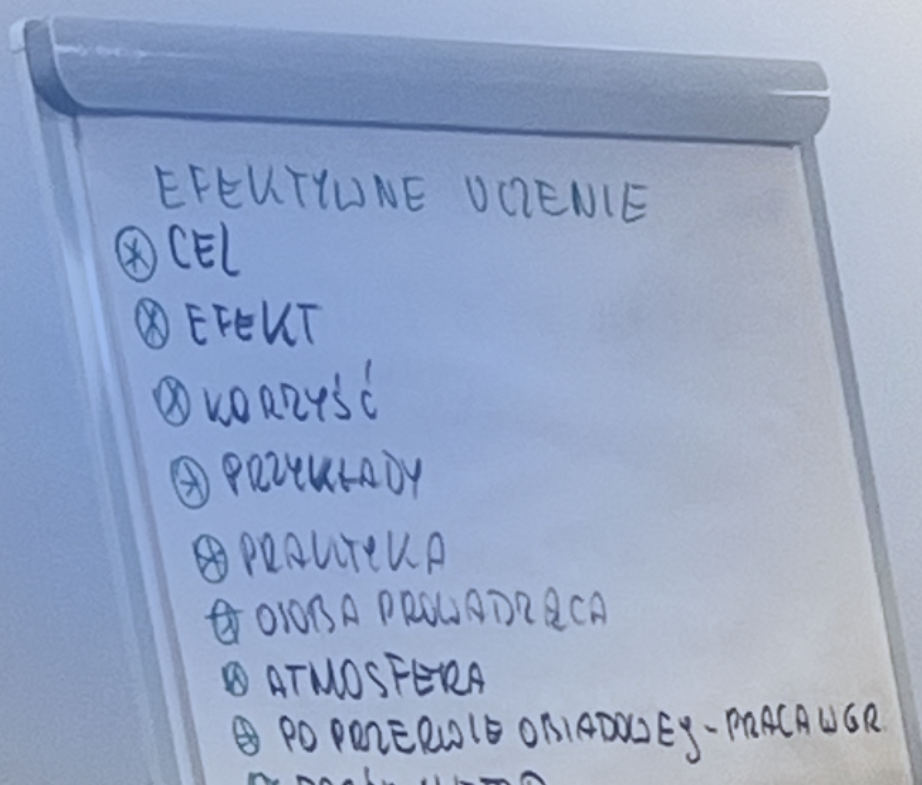 EFEKTYWNE UCZENIE
CEL
EFEKT
KORZYŚĆ
PRZYKŁADY
PRAKTYKA
OSOBA PROWADZĄCA
ATMOSFERA
PO PRZERWIE OBIADOWEJ - PRACA W GR